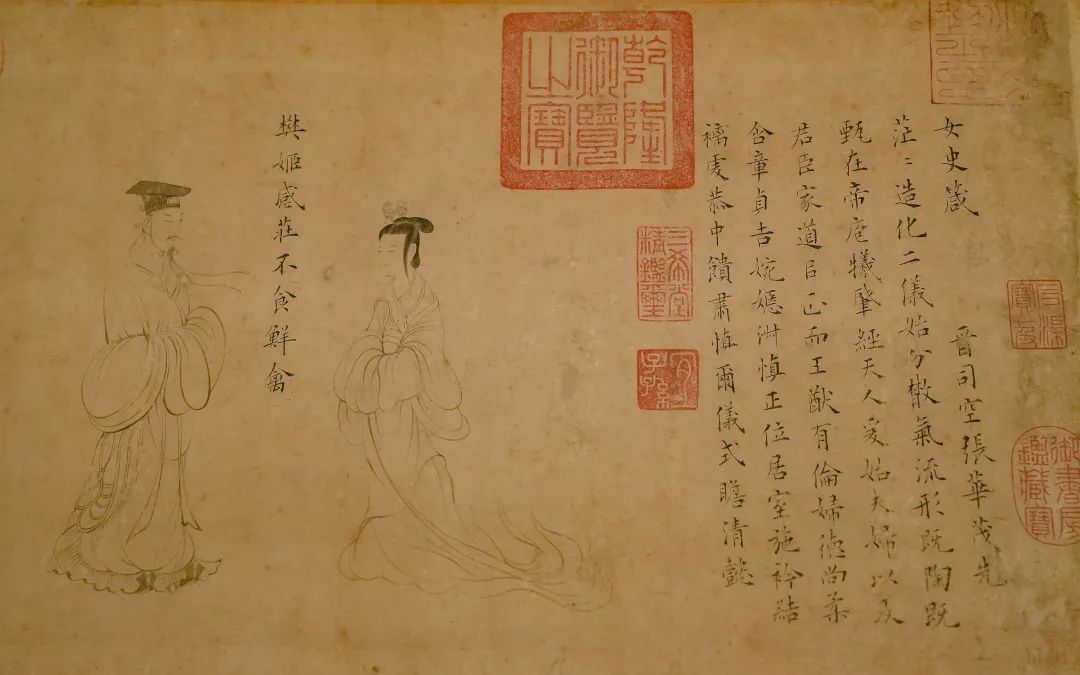 女史箴
晉司空張華茂先
茫〻造化二儀始分散氣流形既陶既
甄在帝庖犧肇經天人爰始夫婦以及
君臣家道㠯正而王猷有倫婦德尚柔
含章貞吉婉嫕淑慎正位居室施衿結
褵虔恭中饋肅慎爾儀式瞻清懿
樊姬感莊不食鮮禽
乾隆
御覽
之寶
三希堂
精鑑璽
宜
子孫
石渠
寶笈
御書房
鑑藏寶